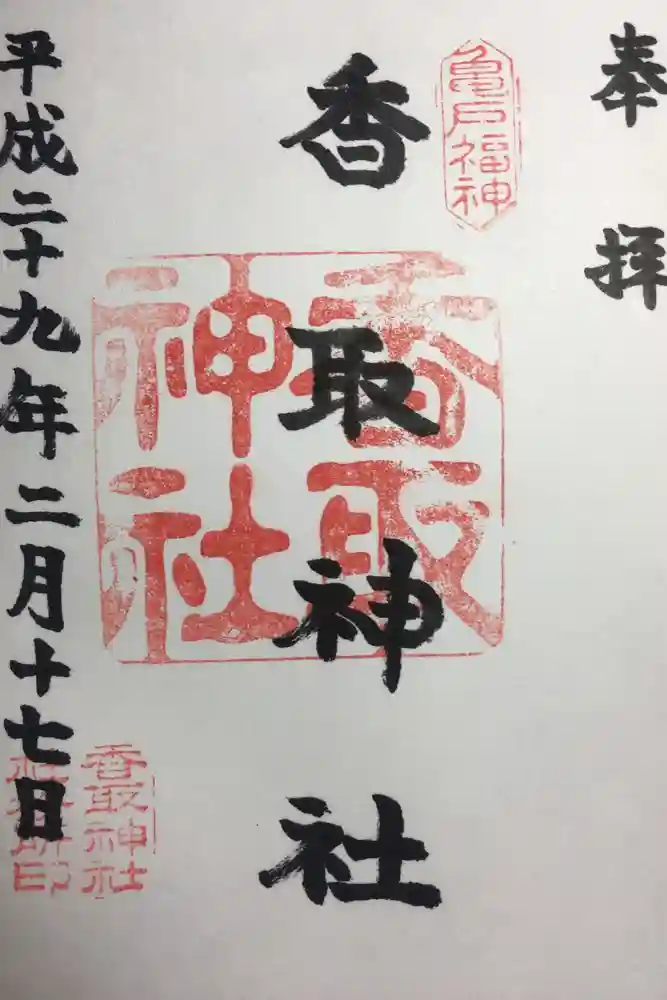 奉拝
亀戸福神
香取神社
香取神社
平成二十九年二月十七日
香取神社
社務所印